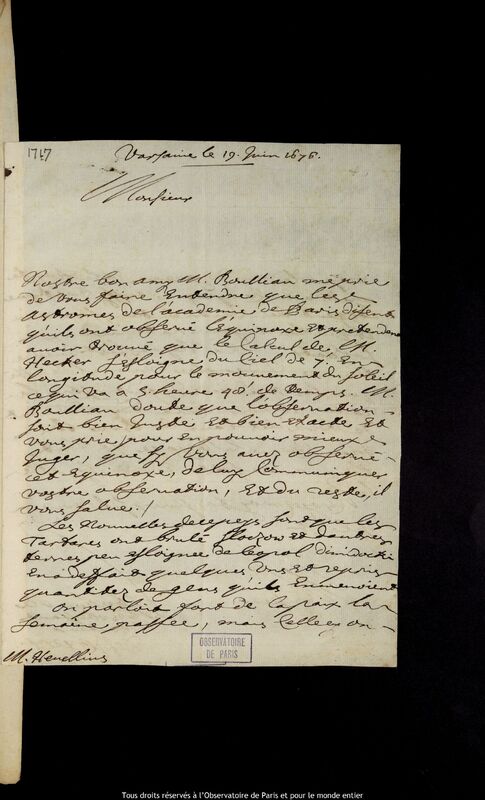 1717
Varsavie le 19. Juin 1676.
Monsieur
Nostre bon amy M. Boullian me prie
de vous faire Entendre que les
Astromes de l'academie de Paris disent
qu'ils ont observé l'equinoxe Et pretendent
avoir trouué que le Calcul de M.
Hecker s'esloigne du Ciel de 7'. En
longitude pour le mouvement du Soleil
ce qui va a 3. heure 48. de temps. M.
Boullian doute que l'observation
soit bien Juste Et bien exacte Et
vous prie pour en pouvoir mieux
Juger, que sy vous avez observé
cet Equinoxe, de luy Communiquer
vostre observation, Et du reste, il
vous salue./
Les Nouuelles de ce pays sont que les
Tartares ont brulé Et d'autres
terres peu esloignée de Leopol
En a deffait quelques uns Et repris
quantitez de gens qu'ils Emmenoient
on parloit fort de la paix la
semaine passée, mais Celle cy on
M. Hevellius
OBSERVATOIRE
DE PARIS
Tous droits réservés à l'Observatoire de Paris et pour le monde entier